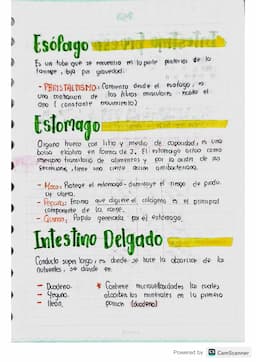 Esófago
Es un tubo que se encuentra en la parte posterior de la
faringe, baja por gravedad.
- PERISTALTISMO: Comienza desde el esófago, es
una contracción de las fibras musculares hasta el
ano (constante movimiento)
Estomago
Órgano hueco con litro y medio de capacidad, es una
bolsa elástica en forma de J. El estomago actua como
transitorio de alimentos y por la acidez de sus
tiene una cierta acción antibacteriana.
- Moco: Protege el estomago, disminuye el riesgo de produ-
cir úlcera.
- Pepsina: Enzima que digiere el colágeno es el principal
componente de la carne.
- Quimo: generada por el estómago.
Intestino Delgado
Conducto super largo, es donde se hace la absorción de los
nutrientes, se divide en:
- Duodeno.
- Yeyuno.
- Ileón.
* Contiene microvellosidades las cuales
absorben los nutrientes en la primera
porción (duodeno)
Powered by CS CamScanner